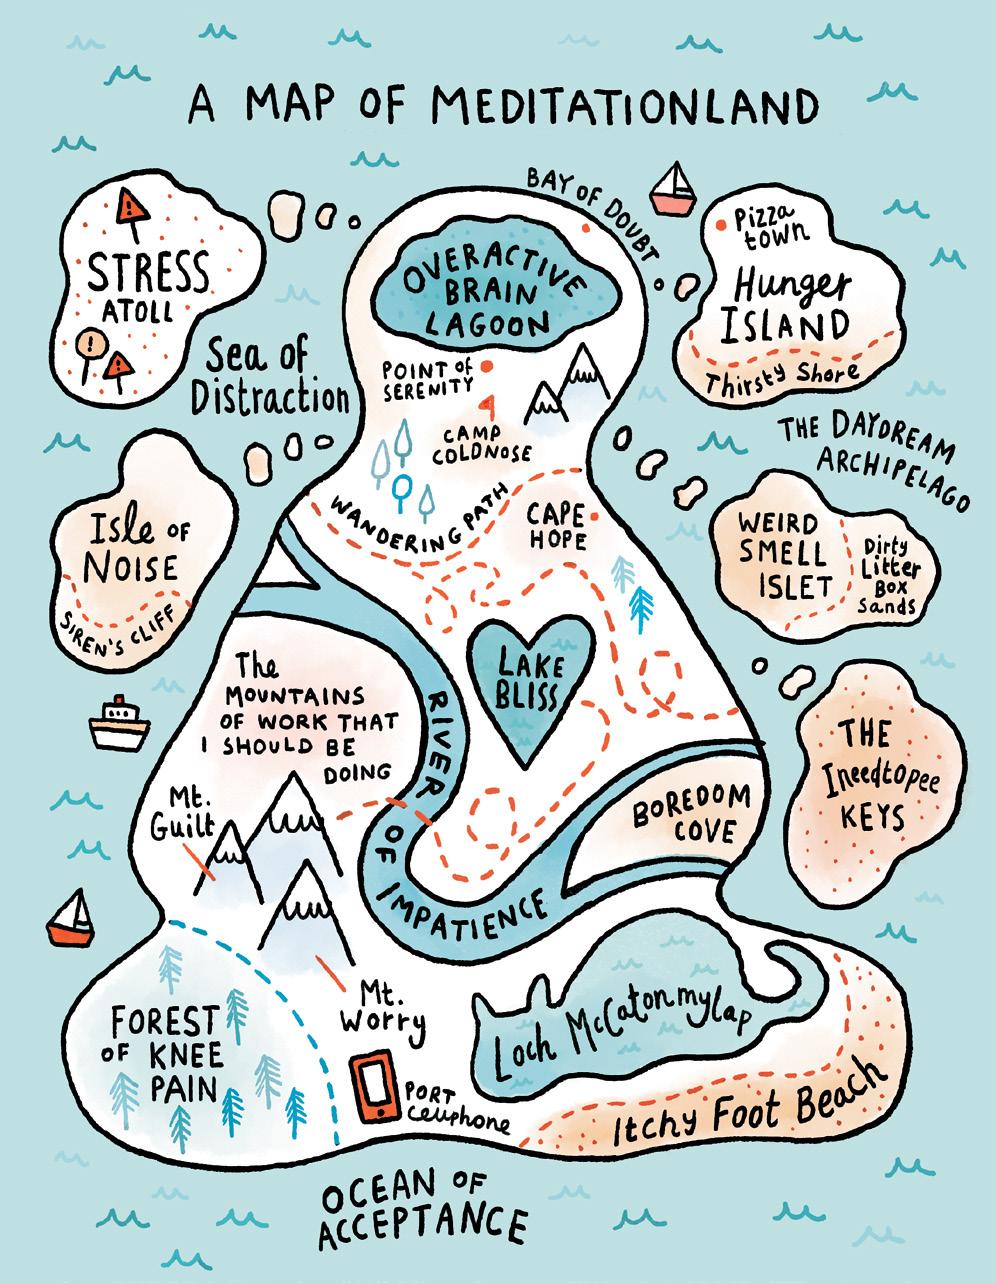 A MAP OF MEDITATIONLAND
BAY OF DOUBT
STRESS
ATOLL
!
!
!
OVERACTIVE
BRAIN
LAGOON
Pizza
town
Hunger
ISLAND
Thirsty Shore
Sea of
Distraction
POINT OF
SERENITY
CAMP
COLDNOSE
THE DAYDREAM
ARCHIPELAGO
Isle OF
NOISE
SIREN'S CLIFF
WANDERING PATH
CAPE
HOPE
WEIRD
SMELL
ISLET
Dirty
Litter
Box
Sands
The
MOUNTAINS
OF WORK THAT
I SHOULD BE
DOING
LAKE
BLISS
RIVER OF IMPATIENCE
Mt.
Guilt
BOREDOM
COVE
THE
Ineedtopee
KEYS
Mt.
Worry
FOREST
OF KNEE
PAIN
Loch McCatonmylap
PORT
Cellphone
Itchy Foot Beach
OCEAN OF
ACCEPTANCE